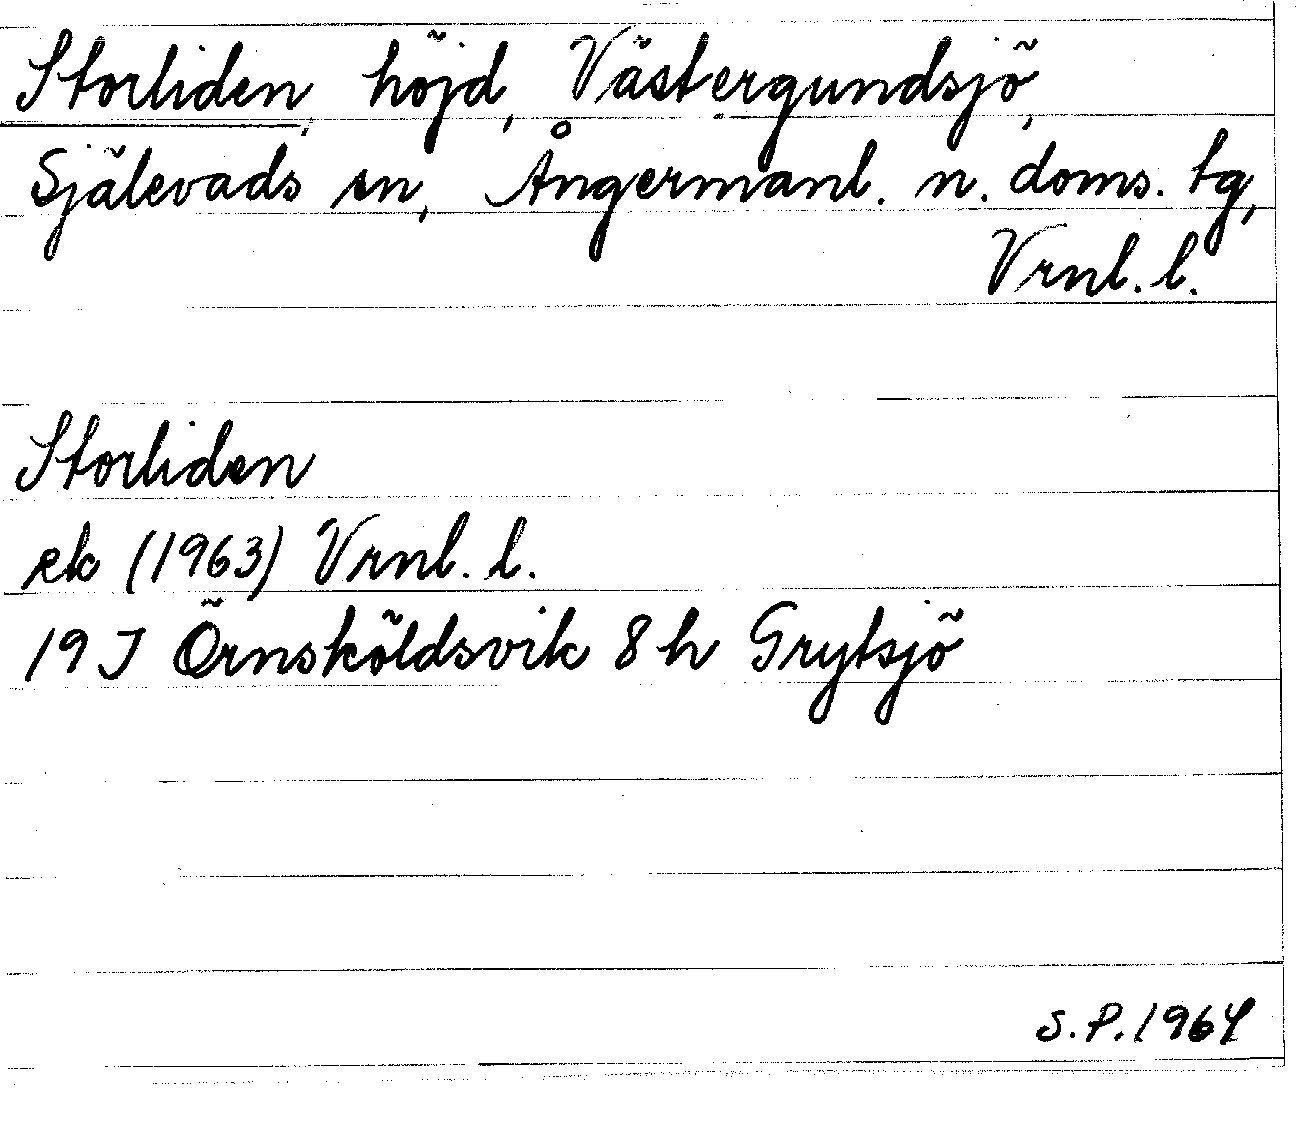 Storliden, höjd, Västergundsjö,
Själevads sn, Ångermanl. n. doms. tg,
Vrnl. l.
Storliden
ek (1963) Vrnl. l.
19 J Örnsköldsvik 8 h Grytsjö
S.P. 1964